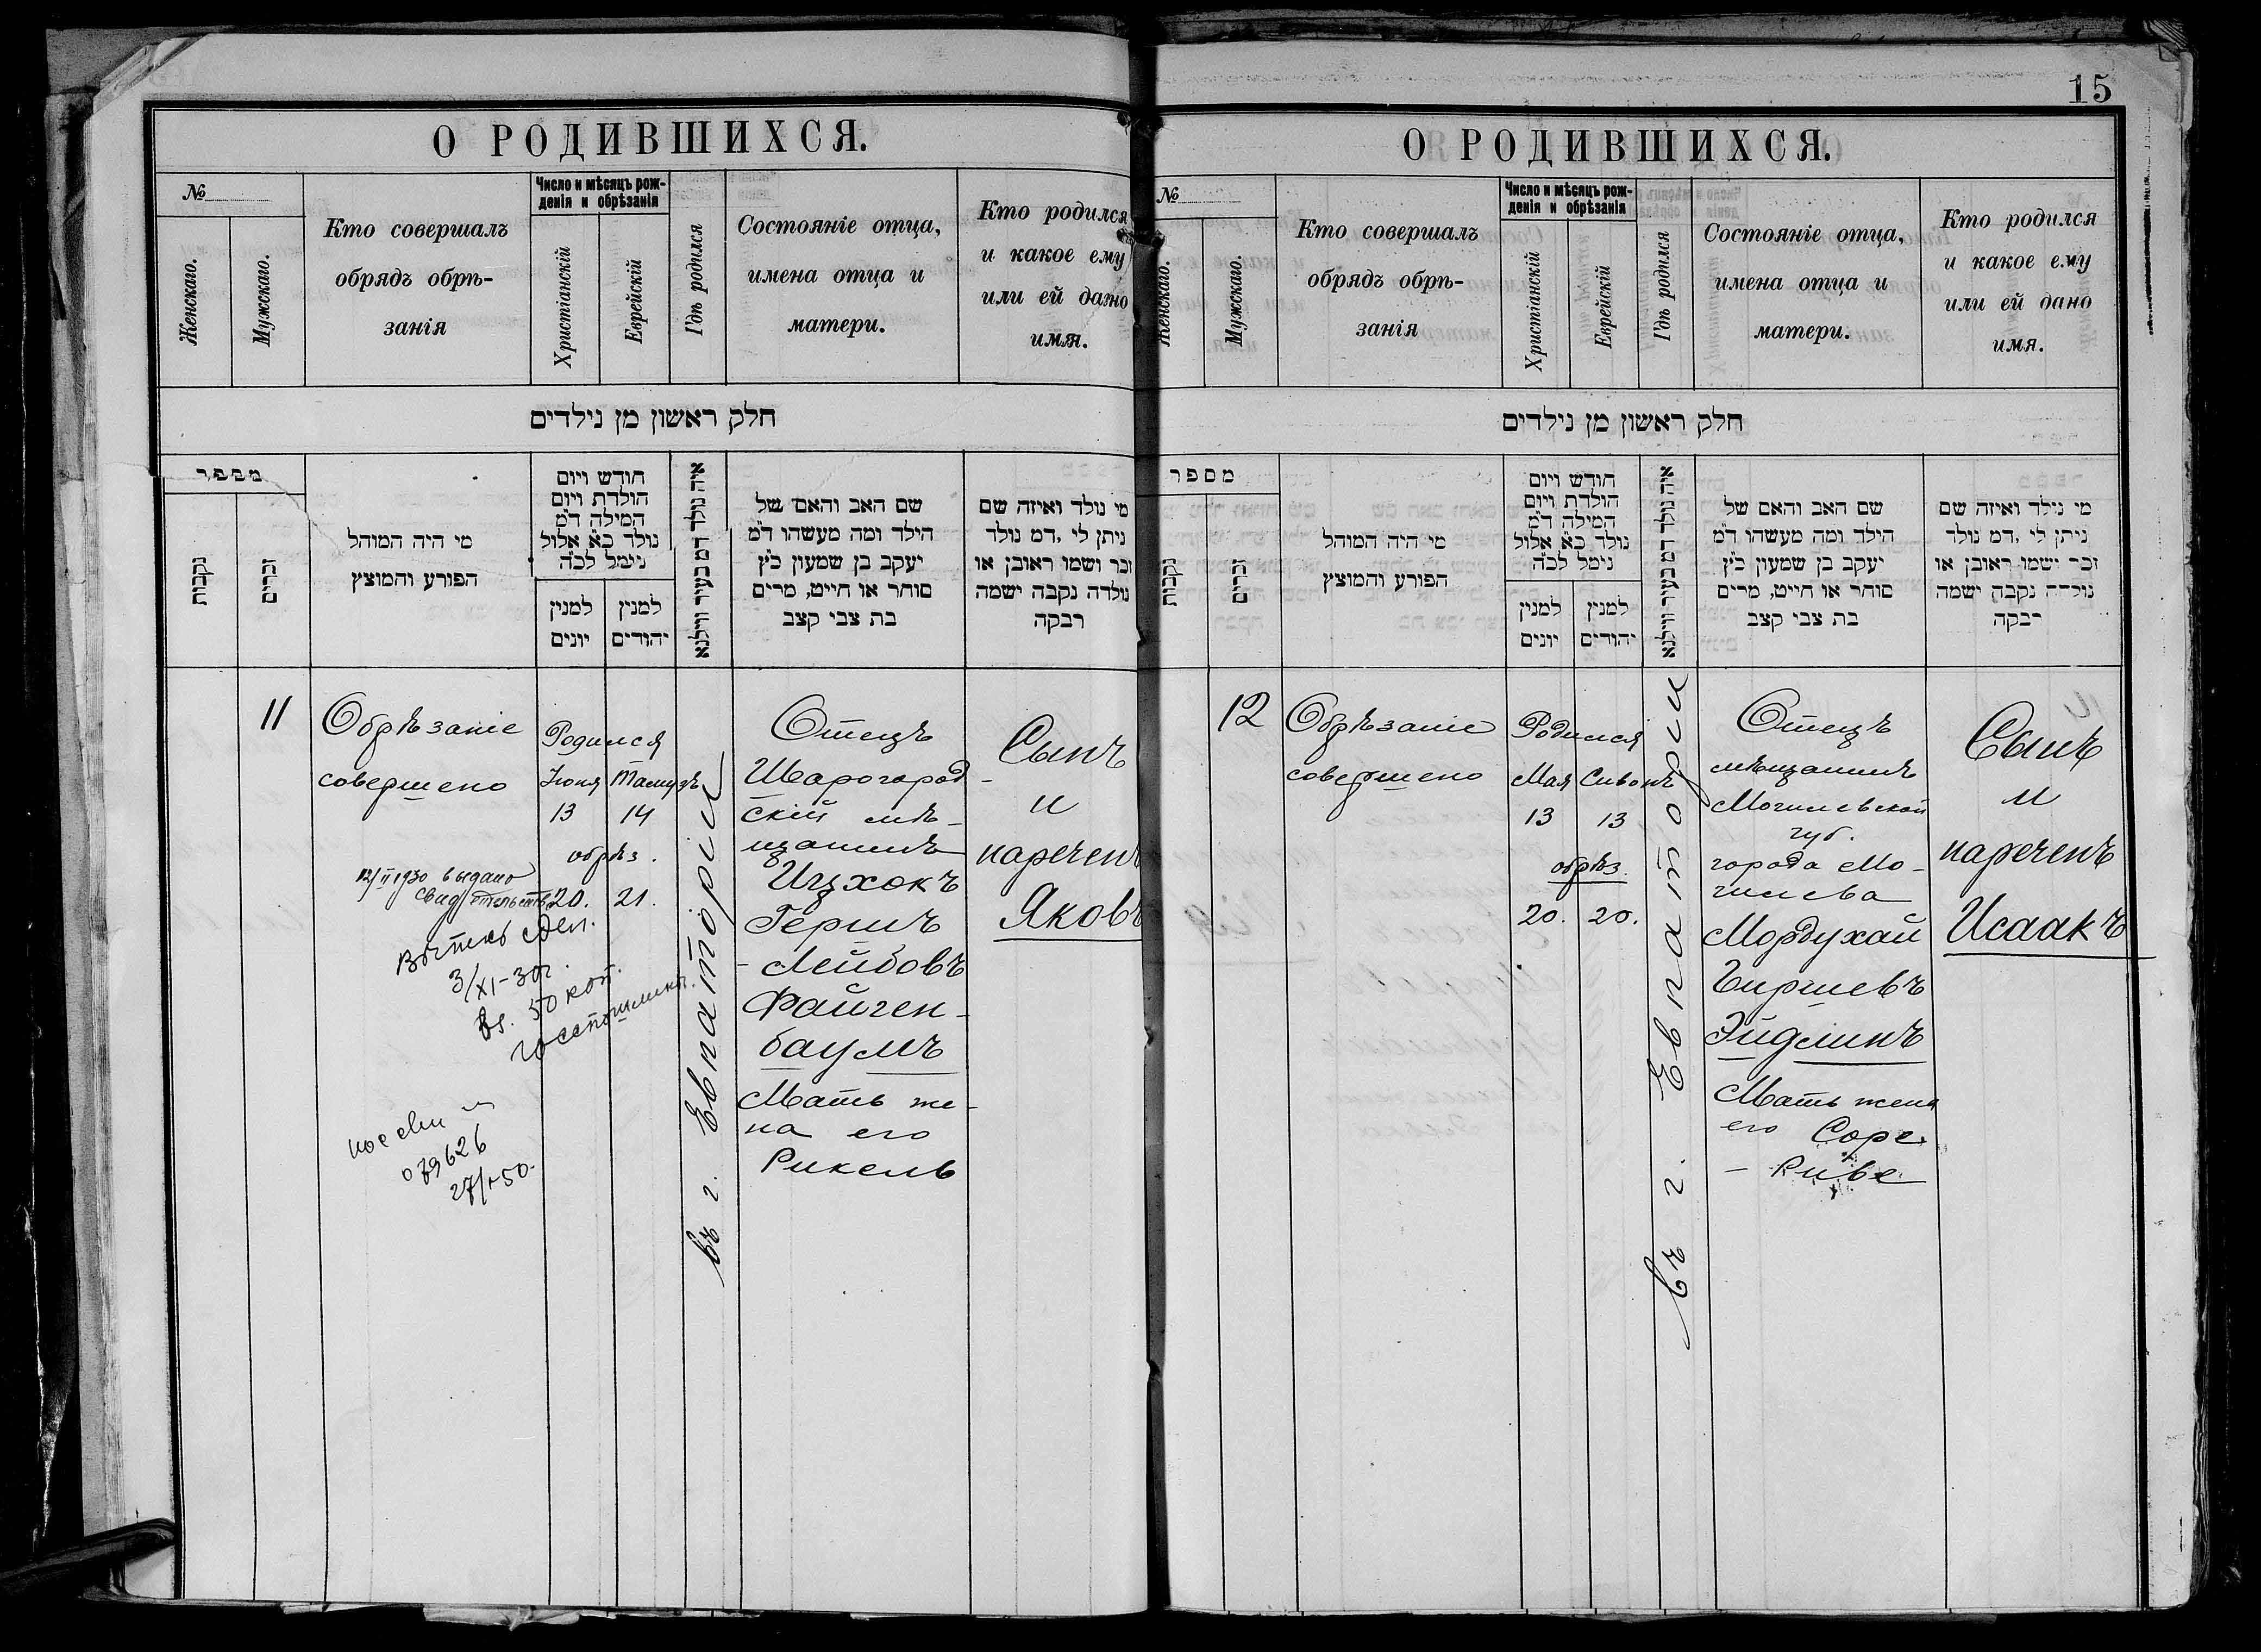 О РОДИВШИХСЯ.
№
Женскаго.
Мужскаго.
Кто совершалъ
обрядъ обрѣ-
занія
Число и мѣсяцъ рож-
денія и обрѣзанія
Христіанскій
Еврейскій
Гдѣ родился
Состояніе отца,
имена отца и
матери.
Кто родился
и какое ему
или ей дано
имя.
חלק ראשון מן נילדים
מספר
נקבות
זכרים
מי היה המוהל
הפורע והמוצץ
חודש ויום
הולדת ויום
המילה ד״מ
נולד כ״א אלול
נימל לכ״ה
למנין
יונים
למנין
יהודים
איה נולד דמ בעיר ווילנא
שם האב והאם של
הילד ומה מעשהו ד״מ
יעקב בן שמעון כ״ץ
סוחר או חייט, מרים
בת צבי קצב
מי נולד ואיזה שם
ניתן לי ,דמ נולד
זכר ושמו ראובן או
נולדה נקבה ישמה
רבקה
11
Обрѣзаніе
совершено
12/II 1930 выдано
свидѣтельство
3/XI-30г.
50 коп.
госпошлины.
079626
Родился
Іюня Тамузъ
13 14
обрѣз.
20. 21.
въ г. Евпаторіи
Отецъ
Шарогород-
скій мѣ-
щанинъ
Ицхокъ
Гершъ
-Лейбовъ
Файген-
баумъ
Мать же-
на его
Рикель
Сынъ
и
нареченъ
Яковъ
15
О РОДИВШИХСЯ.
№
Женскаго.
Мужскаго.
Кто совершалъ
обрядъ обрѣ-
занія
Число и мѣсяцъ рож-
денія и обрѣзанія
Христіанскій
Еврейскій
Гдѣ родился
Состояніе отца,
имена отца и
матери.
Кто родился
и какое ему
или ей дано
имя.
חלק ראשון מן נילדים
מספר
נקבות
זכרים
מי היה המוהל
הפורע והמוצץ
חודש ויום
הולדת ויום
המילה ד״מ
נולד כ״א אלול
נימל לכ״ה
למנין
יונים
למנין
יהודים
איה נולד דמ בעיר ווילנא
שם האב והאם של
הילד ומה מעשהו ד״מ
יעקב בן שמעון כ״ץ
סוחר או חייט, מרים
בת צבי קצב
מי נילד ואיזה שם
ניתן לי ,דמ נולד
זכר ישמו ראובן או
נולדה נקבה ישמה
רבקה
12
Обрѣзаніе
совершено
Родился
Мая Сивонъ
13 13
обрѣз.
20. 20.
въ г. Евпаторіи
Отецъ
мѣщанинъ
Могилевской
губ.
города Мо-
гилева
Мордухай
Гиршевъ
Эйдлинъ
Мать жена
его Сорг
- Риве
Сынъ
и
нареченъ
Исаакъ